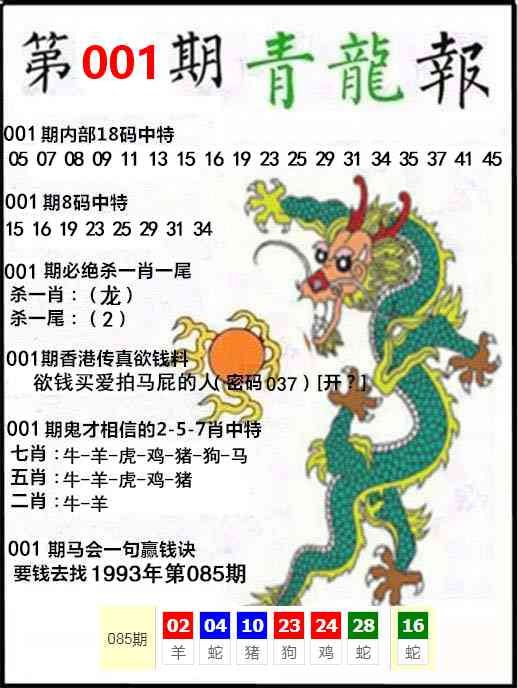 第001期青龍報
001期内部18码中特
05 07 08 09 11 13 15 16 19 23 25 29 31 34 35 37 41 45
001期8码中特
15 16 19 23 25 29 31 34
001 期必绝杀一肖一尾
杀一肖：（龙）
杀一尾：（2）
001期香港传真欲钱料
欲钱买爱拍马屁的人（密码037）[开？]
001期鬼才相信的2-5-7肖中特
七肖：牛-羊-虎-鸡-猪-狗-马
五肖：牛-羊-虎-鸡-猪
二肖：牛-羊
001 期马会一句赢钱诀
要钱去找1993年第085期
085期 02 04 10 23 24 28 16
羊 蛇 猪 狗 鸡 蛇 蛇